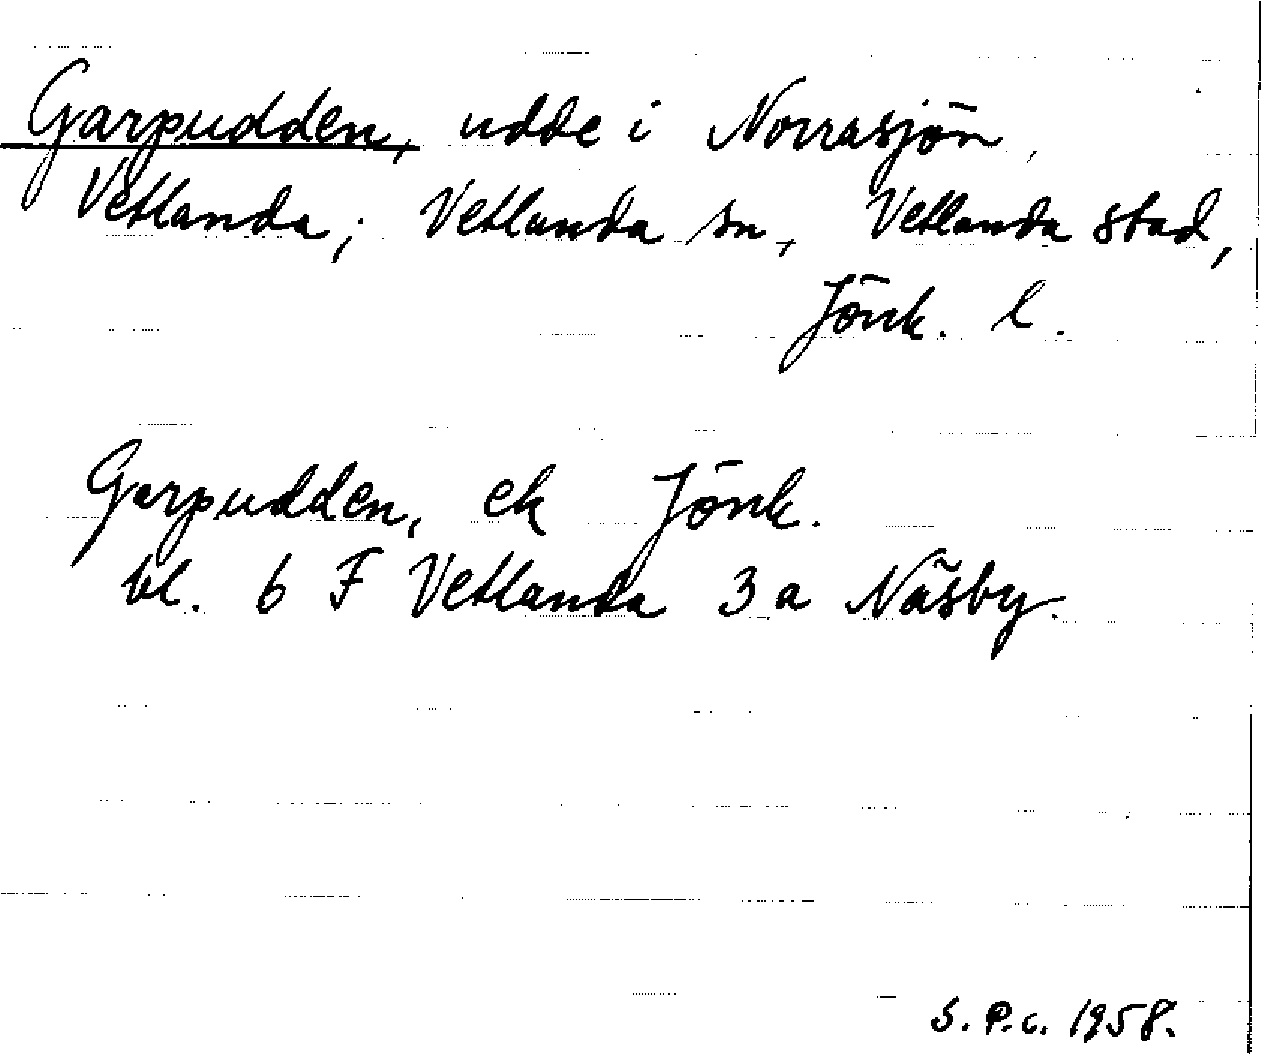 Garpudden, udde i Norrasjön,
Vetlanda; Vetlanda sn, Vetlanda stad,
Jönk. l.
Garpudden, ek Jönk.
bl. 6 F Vetlanda 3a Näsby.
S. P. c. 1958.